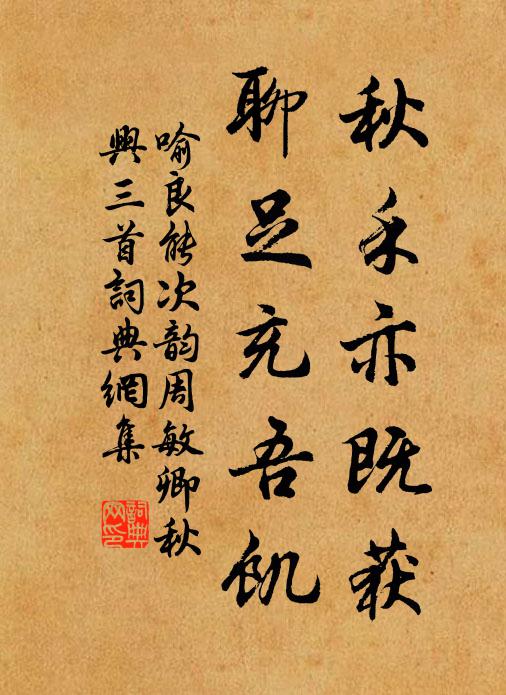 秋禾亦既获
聊足充吾飢
喻良能次韵周敏卿秋
興三首詞典網集
詞典
网印